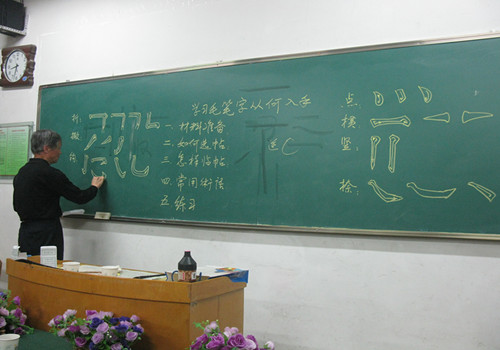 学习毛笔字从何入手
一. 材料准备
二. 如何选帖
三. 怎样临帖
四. 常用術语
五. 练习
选C
点:
横:
竖:
捺:
折: